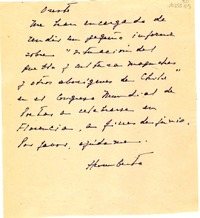 Oreste
Me han encargado de
rendir un pequeño informe
sobre "situación del
pueblo y cultura mapuches
y otros aborígenes de Chile"
en el Congreso Mundial de
Poetas a celebrarse en
Florencia, a fines de junio.
Por favor, ayúdame.
Humberto